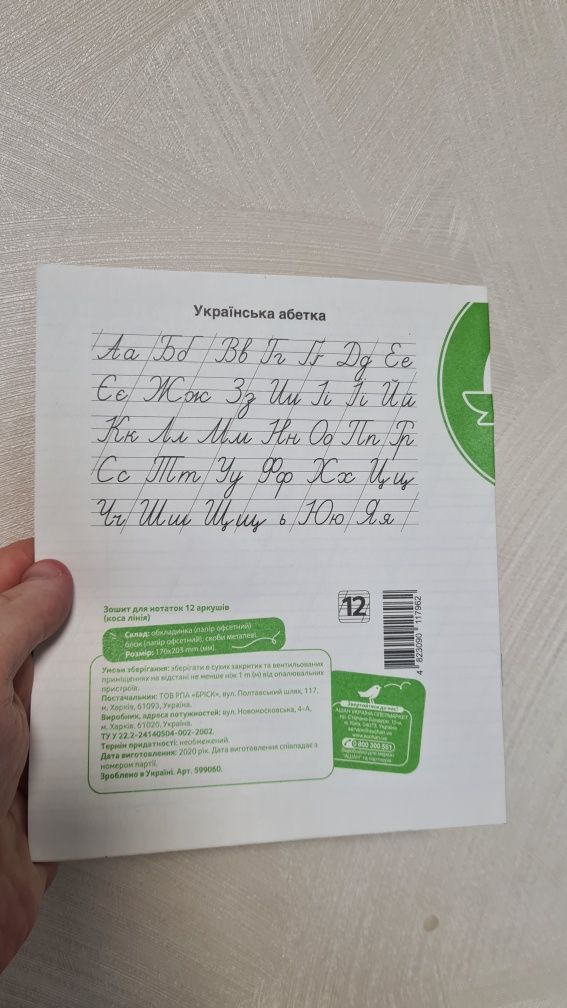 Українська абетка
Аа Бб Вв Гг Ґґ Дд Ее
Єє Жж Зз Ии Іі Її Йй
Кк Лл Мм Нн Оо Пп Рр
Сс Тт Уу Фф Хх Цц
Чч Шш Щщ ь Юю Яя
Зошит для нотаток 12 аркушів
(коса лінія)
Склад: обкладинка (папір офсетний)
блок (папір офсетний), скоби металеві.
Розмір: 170х203 mm (мм).
12
4 823090 117962
Умови зберігання: зберігати в сухих закритих та вентильованих
приміщеннях на відстані не менше ніж 1 m (м) від опалювальних
пристроїв.
Постачальник: ТОВ РПА «БРІСК», вул. Полтавський шлях, 117,
м. Харків, 61093, Україна.
Виробник, адреса потужностей: вул. Новомосковська, 4-А,
м. Харків, 61020, Україна.
ТУ У 22.2-24140504-002-2002.
Термін придатності: необмежений.
Дата виготовлення: 2020 рік. Дата виготовлення співпадає з
номером партії.
Зроблено в Україні. Арт. 599060.
Звертайтеся до нас!
АШАН УКРАЇНА ГІПЕРМАРКЕТ
пр. Степана Бандери, 15-а,
м. Київ, 04073, Україна
service@auchan.ua
www.auchan.ua
0 800 300 551
Вироблено для мережі
"АШАН" та партнерів